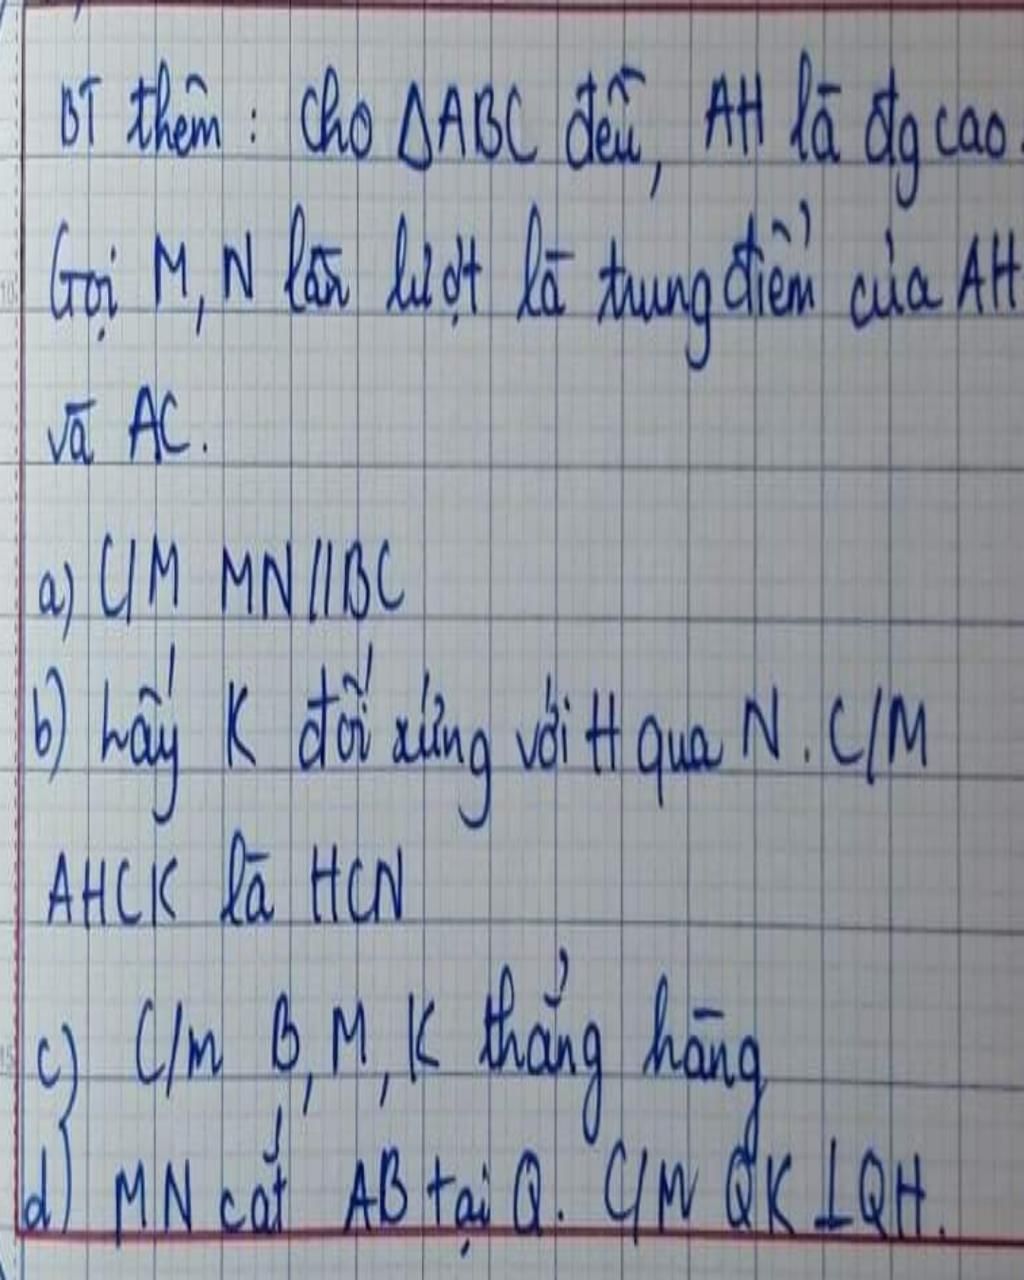 BT thêm : Cho ΔABC đều, AH là đg cao.
Gọi M, N lần lượt là trung điểm của AH
và AC.
a) C/M MN//BC
b) Lấy K đối xứng với H qua N. C/M
AHCK là HCN
c) C/m B, M, K thẳng hàng
d) MN cắt AB tại Q. C/M QK ⊥ QH.